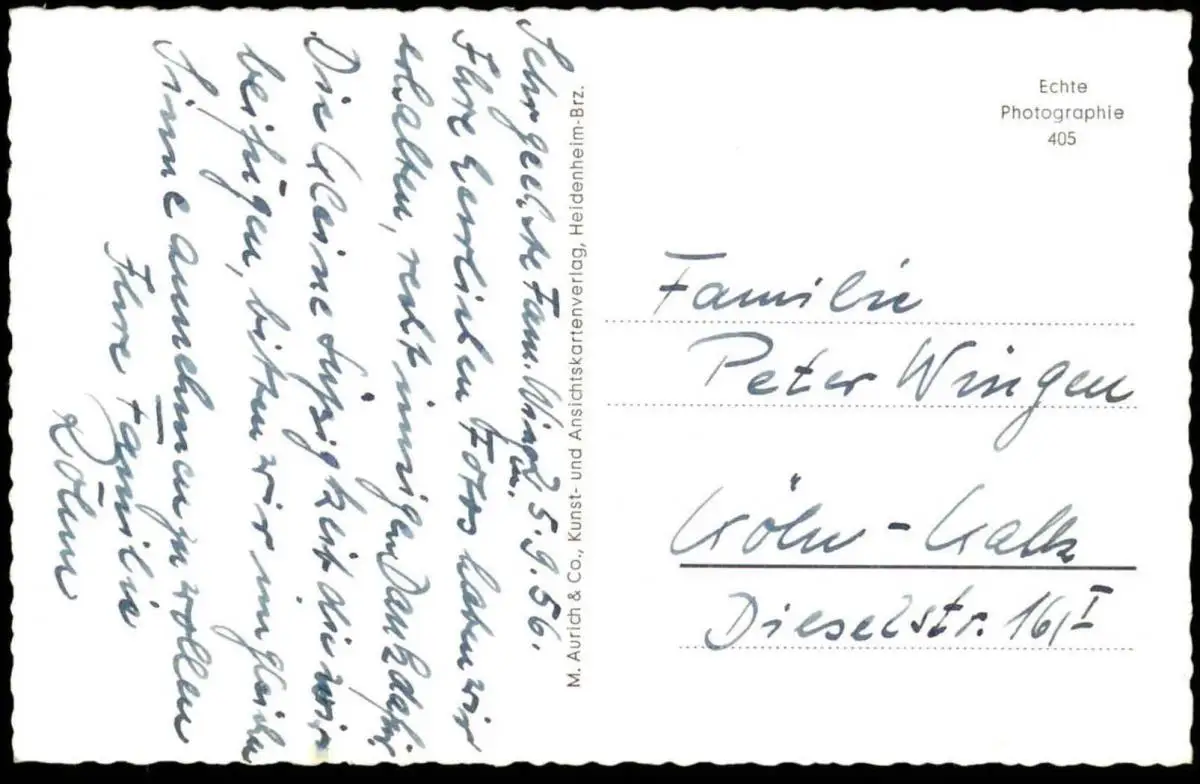 Sehr geehrte Fam. Wingen. 25.9.56.
Ihre herrlichen Fotos haben wir
erhalten, recht innigen Dank dafür
Die kleine Süssigkeit die wir
beifügen, bitten wir im gleichen
Sinne annehmen zu wollen
Ihre Familie
M. Aurich & Co., Kunst- und Ansichtskartenverlag, Heidenheim-Brz.
Echte
Photographie
405
Familie
Peter Wingen
Köln-Kalk
Dieselstr. 16/I